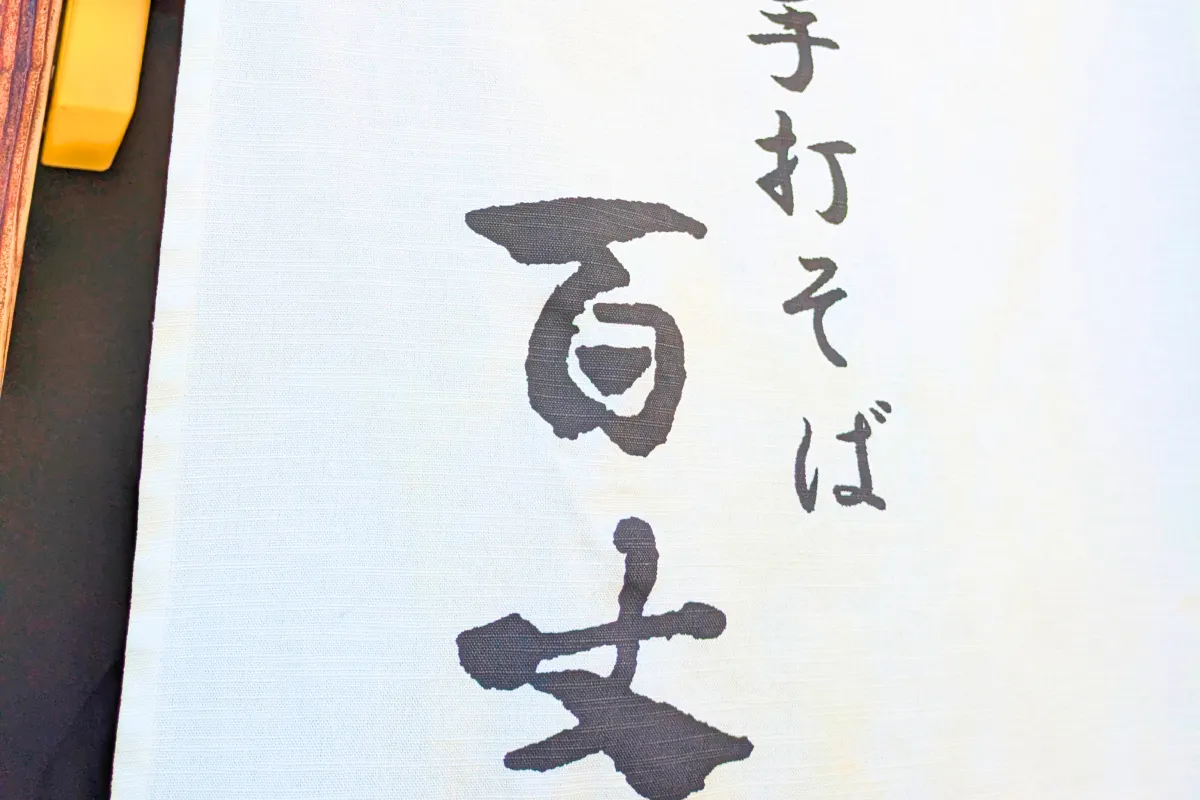 手打そば
百丈